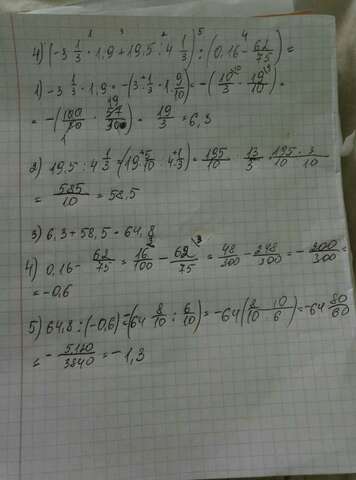 4) (-3 1/3 · 1,9 + 19,5 : 4 1/3) : (0,16 - 62/75) =
1) -3 1/3 · 1,9 = -(3 1/3 · 1 9/10) = -(10/3 · 19/10) =
= -(100/30 · 57/30) = 19/3 = 6,3
2) 19,5 : 4 1/3 = (19 5/10 · 4 1/3) = 195/10 · 13/3 195 · 3/10
= 585/10 = 58,5
3) 6,3 + 58,5 = 64,8
4) 0,16 - 62/75 = 16/100 - 62/75 = 48/300 - 248/300 = - 200/300 =
= -0,6
5) 64,8 : (-0,6) = (64 8/10 : 6/10) = -64 (8/10 · 10/6) = -64 80/60
= - 5120/3840 = -1,3